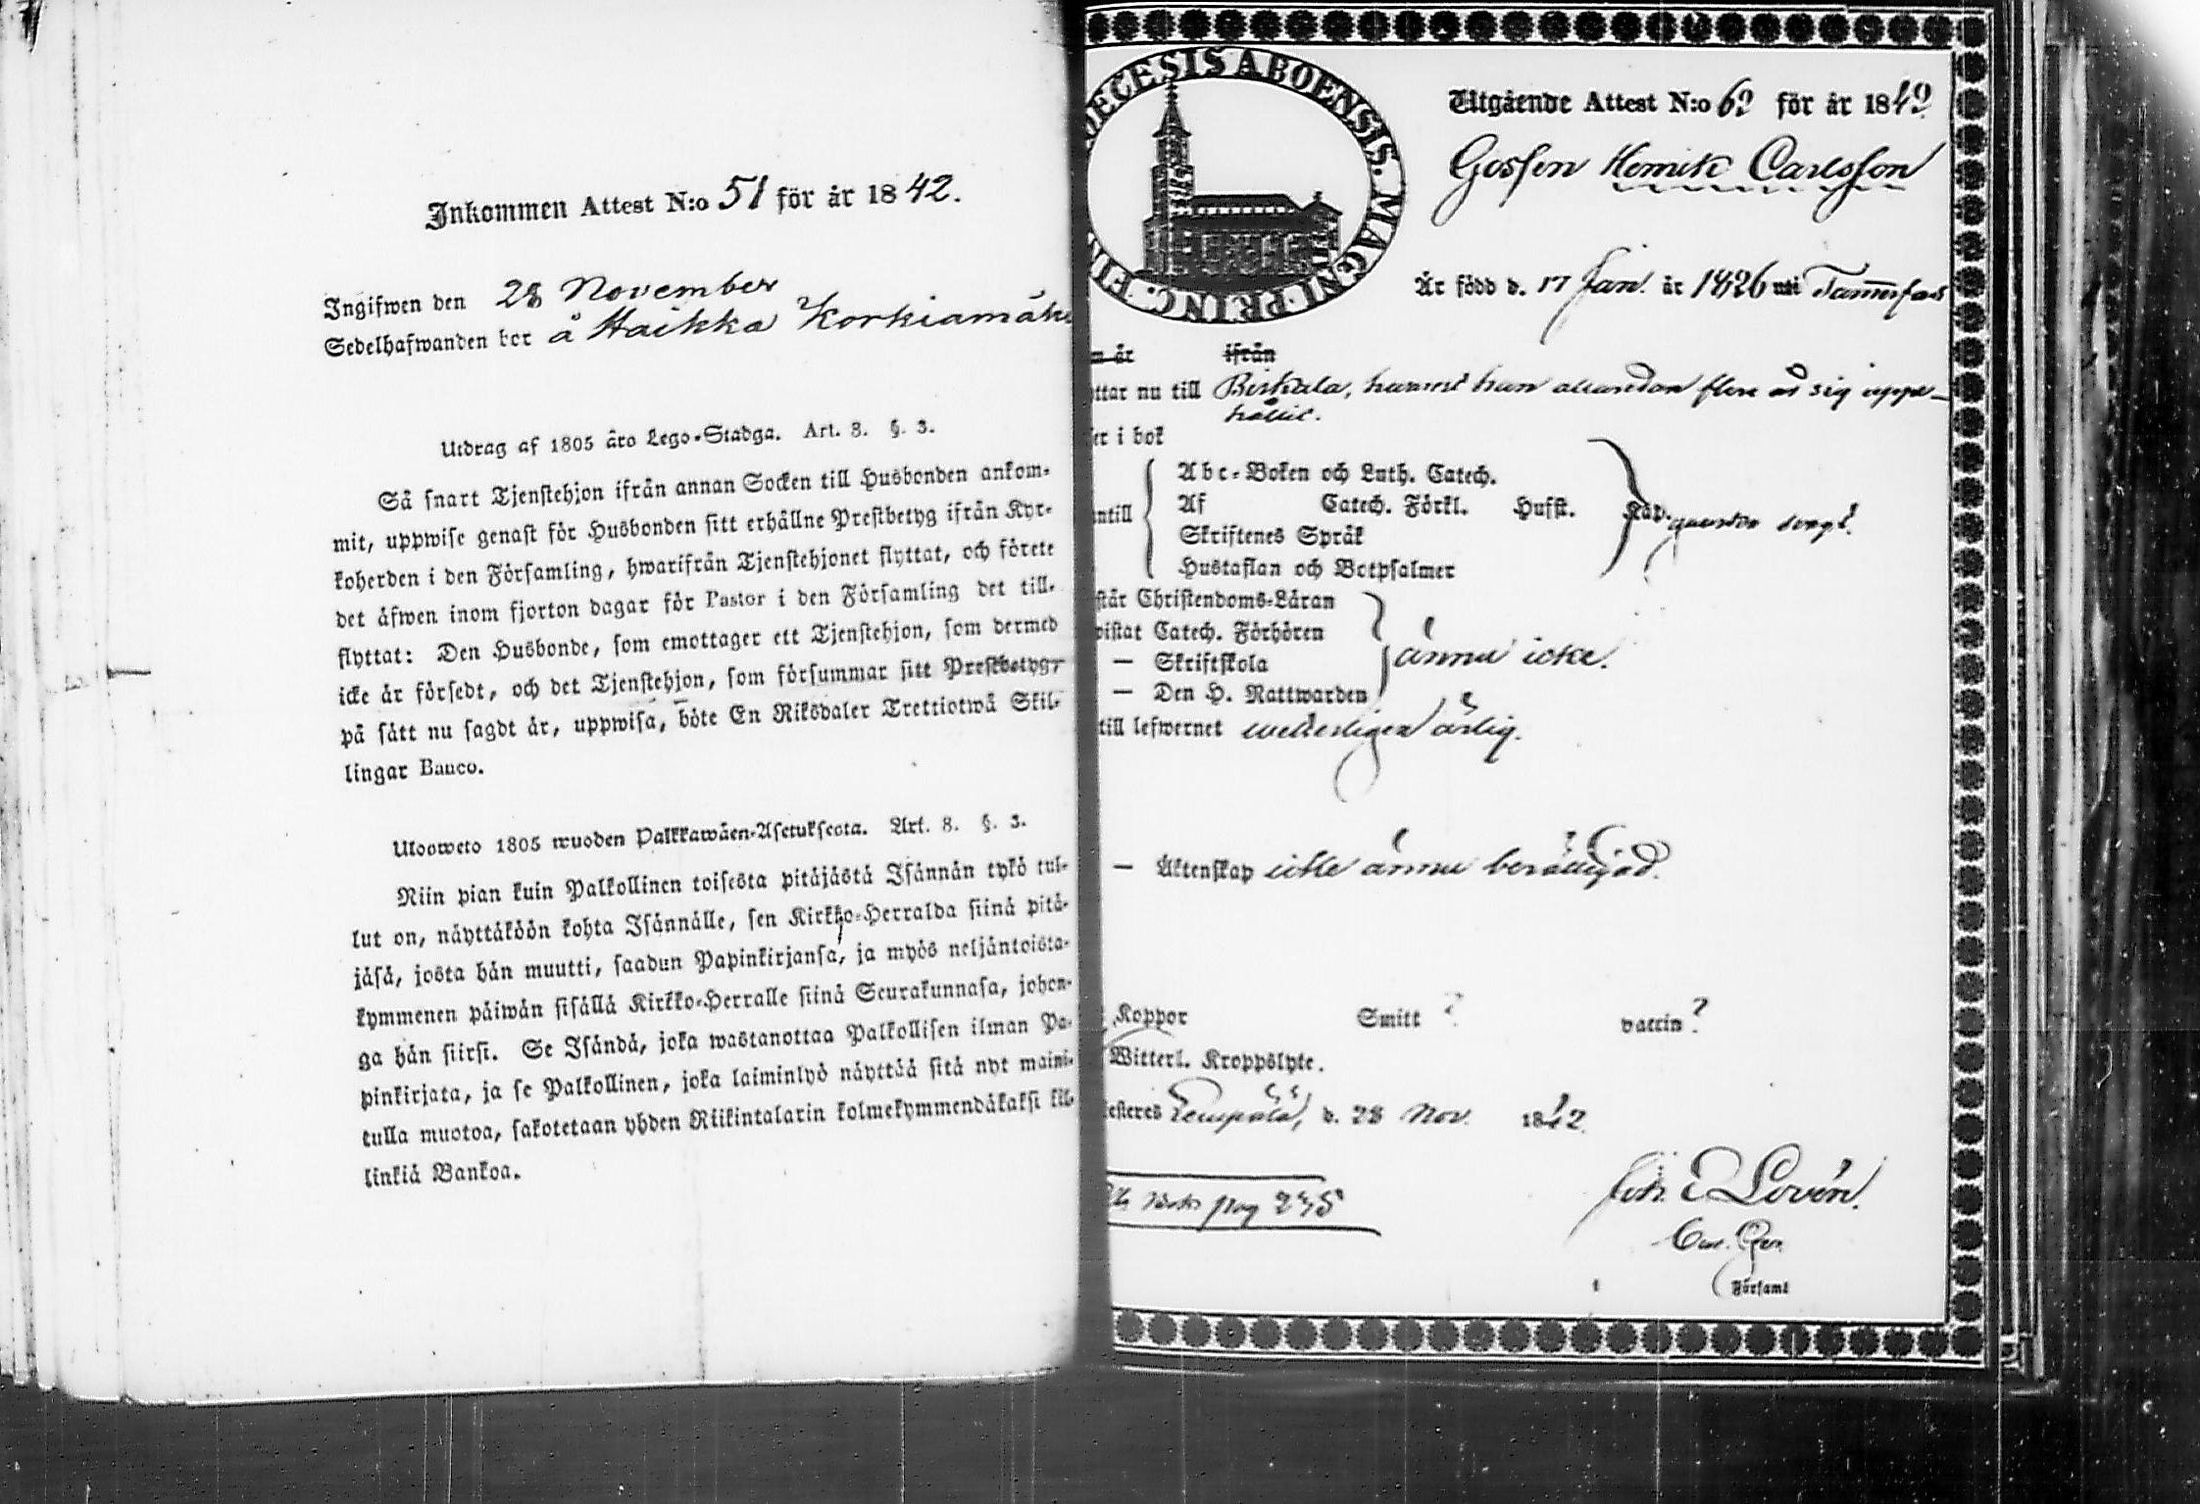 Inkommen Attest N:o 51 för år 1842.
Ingifwen den 28 November
Sedelhafwanden bor å Haikka Korkiamäki
Utdrag af 1805 åro Lego-Stadga. Art. 8. §. 3.
Så snart Tjenstehjon ifrån annan Socken till Husbonden ankom-
mit, uppwise genast för Husbonden sitt erhållne Prestbetyg ifrån Kyr-
koherden i den Församling, hwarifrån Tjenstehjonet flyttat, och förete
det äfwen inom fjorton dagar för Pastor i den Församling det till-
flyttat: Den Husbonde, som emottager ett Tjenstehjon, som dermed
icke är försedt, och det Tjenstehjon, som försummar sitt Prestbetyg,
på sätt nu sagdt är, uppwisa, böte En Riksdaler Trettiotwå Skil-
lingar Banco.
Ulosweto 1805 wuoden Palkkawäen-Asetuksesta. Art. 8. §. 3.
Niin pian kuin Palkollinen toisesta pitäjästä Isännän tykö tul-
lut on, näyttäköön kohta Isännälle, sen Kirkko-Herralda siinä pitä-
jäsä, josta hän muutti, saadun Papinkirjansa, ja myös neljäntoista-
kymmenen päiwän sisällä Kirkko-Herralle siinä Seurakunnasa, johon-
ga hän siirsi. Se Isändä, joka wastanottaa Palkollisen ilman Pa-
pinkirjata, ja se Palkollinen, joka laiminlyö näyttää sitä nyt maini-
tulla muotoa, sakotetaan yhden Riikintalarin kolmekymmendäkaksi kil-
linkiä Bankoa.
DECESIS ABOENSIS. MAGNI PRINC. FIN
Utgående Attest N:o 62 för år 1842
Gossen Henrik Carlsson
Är född d. 17 Jan. år 1826 uti Tammerfors
n år ifrån
ttar nu till Birkala, hwarest han allaredan flere år sig uppe-
hållit.
er i bok
Abc-Boken och Luth. Catech.
ntill Af Catech. Förkl. Hufst. Kap.
Skriftenes Språk
Hustaflan och Botpsalmer
står Christendoms-Läran
wistat Catech. Förhören
— Skriftskola ännu icke.
— Den H. Nattwarden
till lefwernet weterligen ärlig.
— Äktenskap icke ännu berättigad.
Koppor Smitt ? vaccin ?
Witterl. Kroppslyte.
esteres Lempälä, d. 28 Nov. 1842.
pag 235
Joh. E Lovén.
Församl